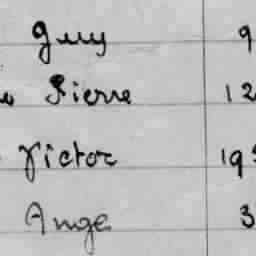 Guy 9
Pierre 12
Victor 19
Ange 3